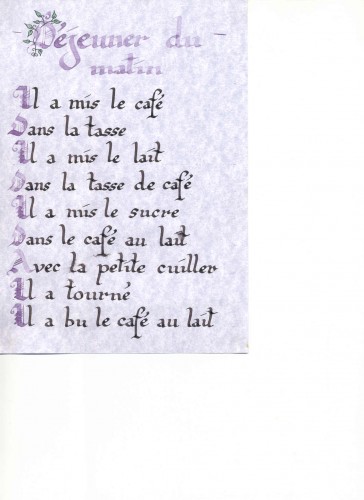 Déjeuner du
matin
Il a mis le café
Dans la tasse
Il a mis le lait
Dans la tasse de café
Il a mis le sucre
Dans le café au lait
Avec la petite cuiller
Il a tourné
Il a bu le café au lait